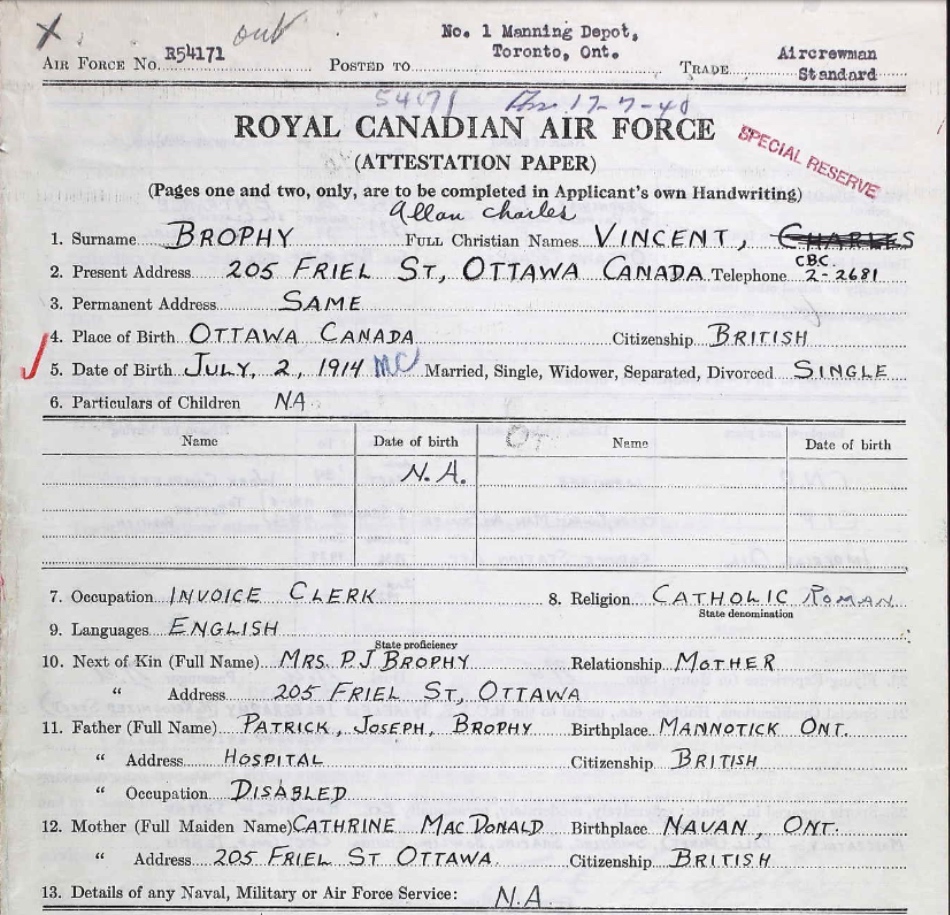 X out No. 1 Manning Depot,
AIR FORCE NO. R54171 POSTED TO Toronto, Ont. TRADE Aircrewman
Standard
54171 17-7-40
ROYAL CANADIAN AIR FORCE
SPECIAL RESERVE
(ATTESTATION PAPER)
(Pages one and two, only, are to be completed in Applicant's own Handwriting)
Allan Charles
1. Surname BROPHY FULL Christian Names VINCENT, CHARLES
2. Present Address 205 FRIEL ST, OTTAWA CANADA Telephone C.B.C. 2-2681
3. Permanent Address SAME
4. Place of Birth OTTAWA CANADA Citizenship BRITISH
5. Date of Birth JULY, 2, 1914 MC Married, Single, Widower, Separated, Divorced SINGLE
6. Particulars of Children NA
Name Date of birth Name Date of birth
N.A.
7. Occupation INVOICE CLERK 8. Religion CATHOLIC ROMAN
State denomination
9. Languages ENGLISH
State proficiency
10. Next of Kin (Full Name) MRS. P.J BROPHY Relationship MOTHER
" Address 205 FRIEL ST, OTTAWA
11. Father (Full Name) PATRICK, JOSEPH, BROPHY Birthplace MANNOTICK ONT.
" Address HOSPITAL Citizenship BRITISH
" Occupation DISABLED
12. Mother (Full Maiden Name) CATHRINE MACDONALD Birthplace NAVAN, ONT.
" Address 205 FRIEL ST OTTAWA Citizenship BRITISH
13. Details of any Naval, Military or Air Force Service: N.A.